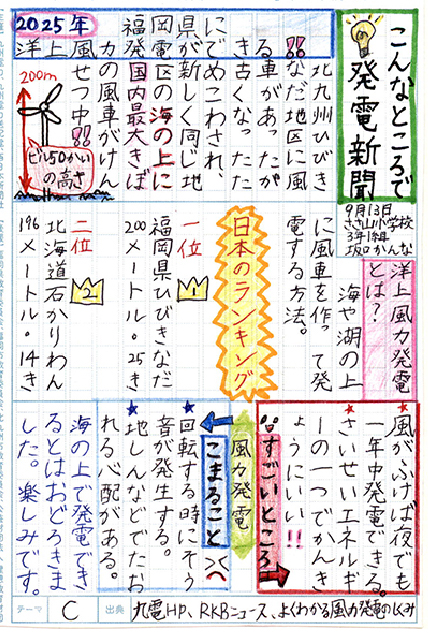 こんなところで
発電新聞
9月13日
ささ山小学校
3年1組
坂口かんな
2025年
洋上風力発電福岡県にできる!!
北九州ひびき
なだ地区に風
車があったが
古くなったた
めこわされ、
新しく同じ地
区の海の上に
国内最大きぼ
の風車がけん
せつ中!!
200m
ビル50かい
の高さ
洋上風力発電
とは?
海や湖の上
に風車を作って発
電する方法。
日本のランキング
一位
1
福岡県ひびきなだ
200メートル・25き
二位
2
北海道石かりわん
196メートル・14き
風力発電
すごいところ
風がふけば夜でも
一年中発電できる。
さいせいエネルギ
ーの一つでかんき
ょうにいい!!
こまること
回転する時にそう
音が発生する。
地しんなどでたお
れる心配がある。
海の上で発電でき
るとはおどろきま
した。楽しみです。
テーマ C
出典 九電HP、RKBニュース、よくわかる風力発電のしくみ